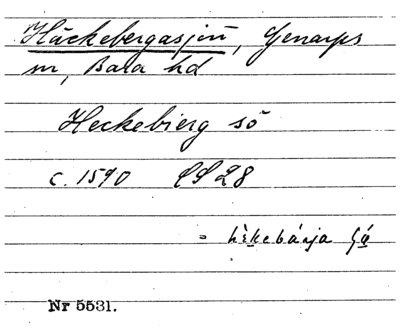 Häckebergasjön, Genarps
sn, Bara hd
Heckebierg sö
c. 1590 PS 28
= hèkebárja
Nr 5531.